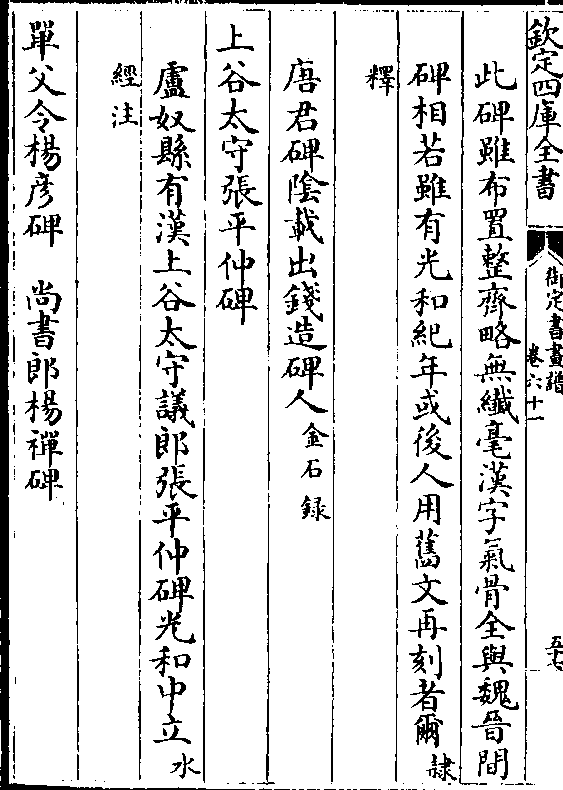 欽定四庫全書
御定書畫譜
卷六十一
五十七
此碑雖布置整齊略無纖毫漢字氣骨全與魏晉間
碑相若雖有光和紀年或後人用舊文再刻者爾隷
釋
唐君碑陰載出錢造碑人金石録
上谷太守張平仲碑
盧奴縣有漢上谷太守議郎張平仲碑光和中立水
經注
單父令楊彦碑　尚書郎楊禪碑